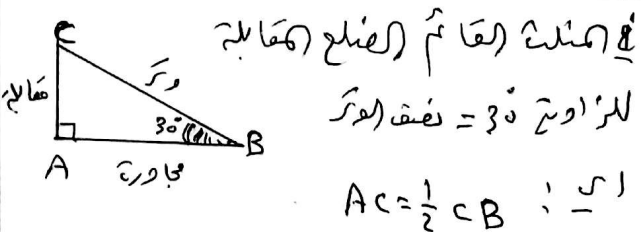 في المثلث القائم الضلع المقابلة
للزاوية 30° = نصف الوتر
أي : AC = 1/2 CB
C
وتر
مقابلة
30°
B
A
مجاورة